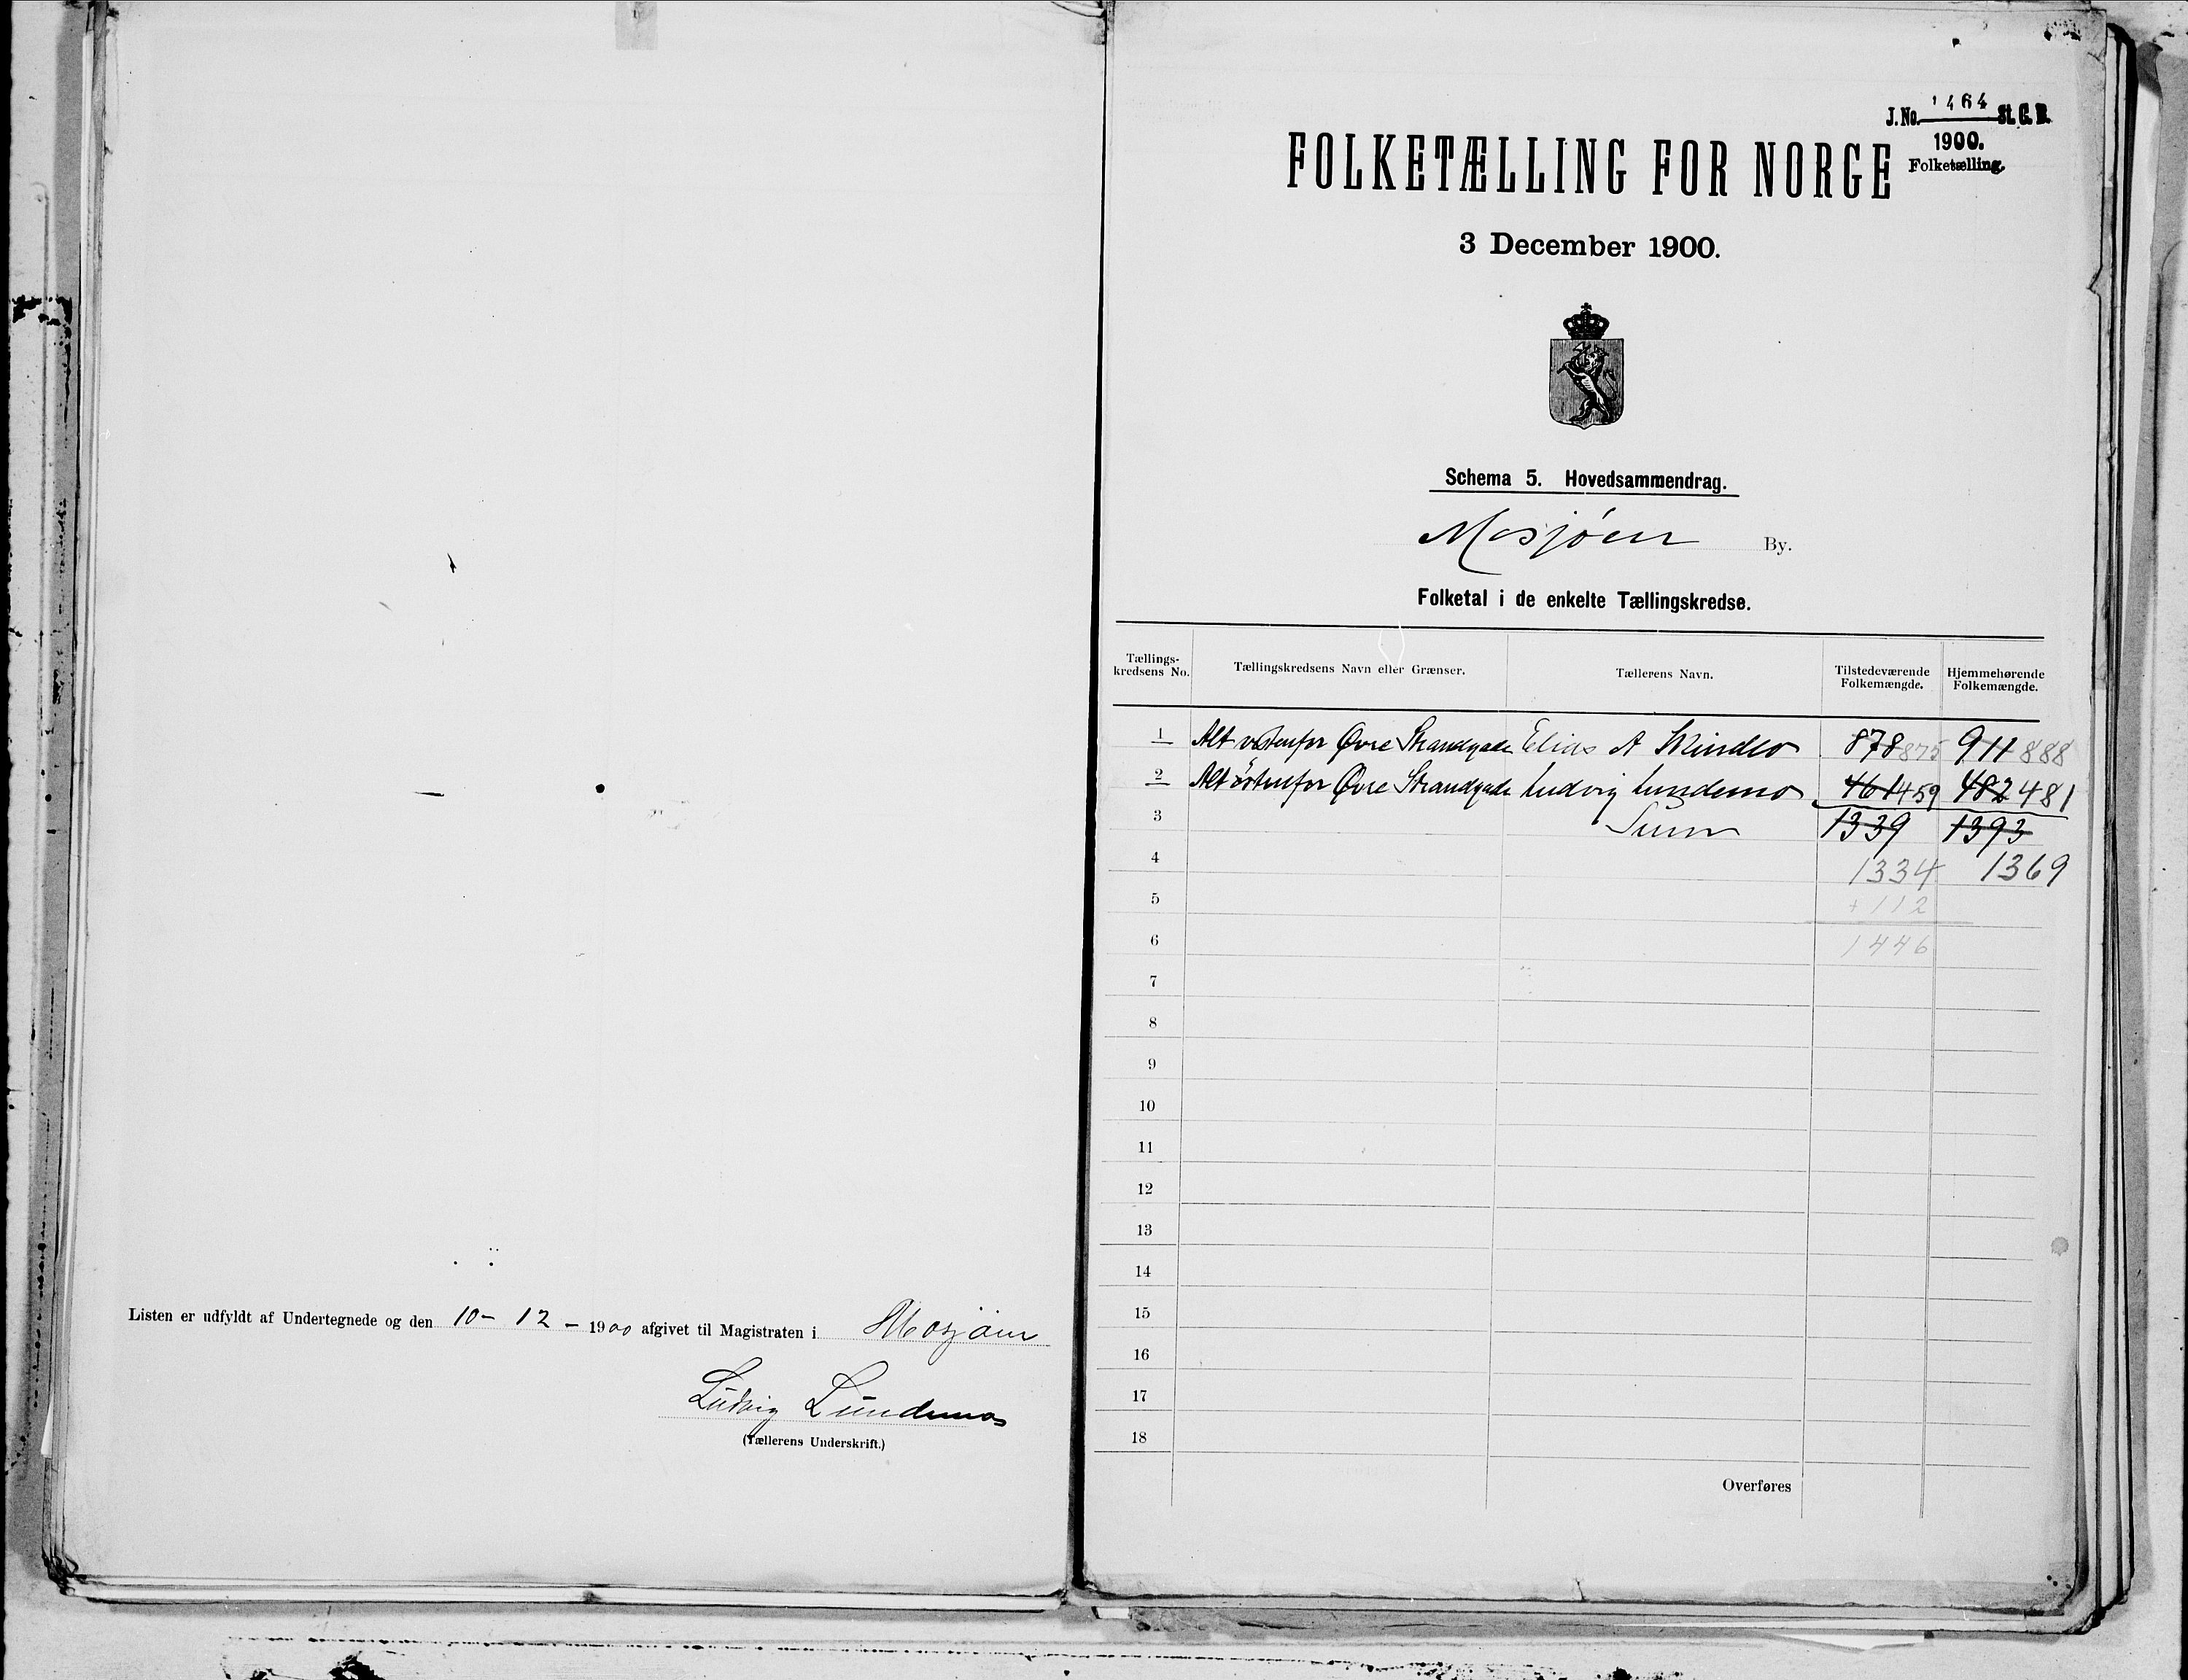 Listen er udfyldt af Undertegnede og den 10 - 12 - 1900 afgivet til Magistraten i Mosjøen
Ludvig Lundemo
(Tællerens Underskrift.)
J. No. 1464 St. C. B.
1900.
Folketælling.
FOLKETÆLLING FOR NORGE
3 December 1900.
Schema 5. Hovedsammendrag.
Mosjøen By.
Folketal i de enkelte Tællingskredse.
Tællings-kredsens No. Tællingskredsens Navn eller Grænser. Tællerens Navn. Tilstedeværende Folkemængde. Hjemmehørende Folkemængde.
1 Alt vestenfor Øvre Strandgade Elias A 878 875 911 888
2 Alt østenfor Øvre Strandgade Ludvig Lundemo 461 459 482 481
3 Sum 1339 1393
4 1334 1369
5 + 112
6 1446
7
8
9
10
11
12
13
14
15
16
17
18
Overføres